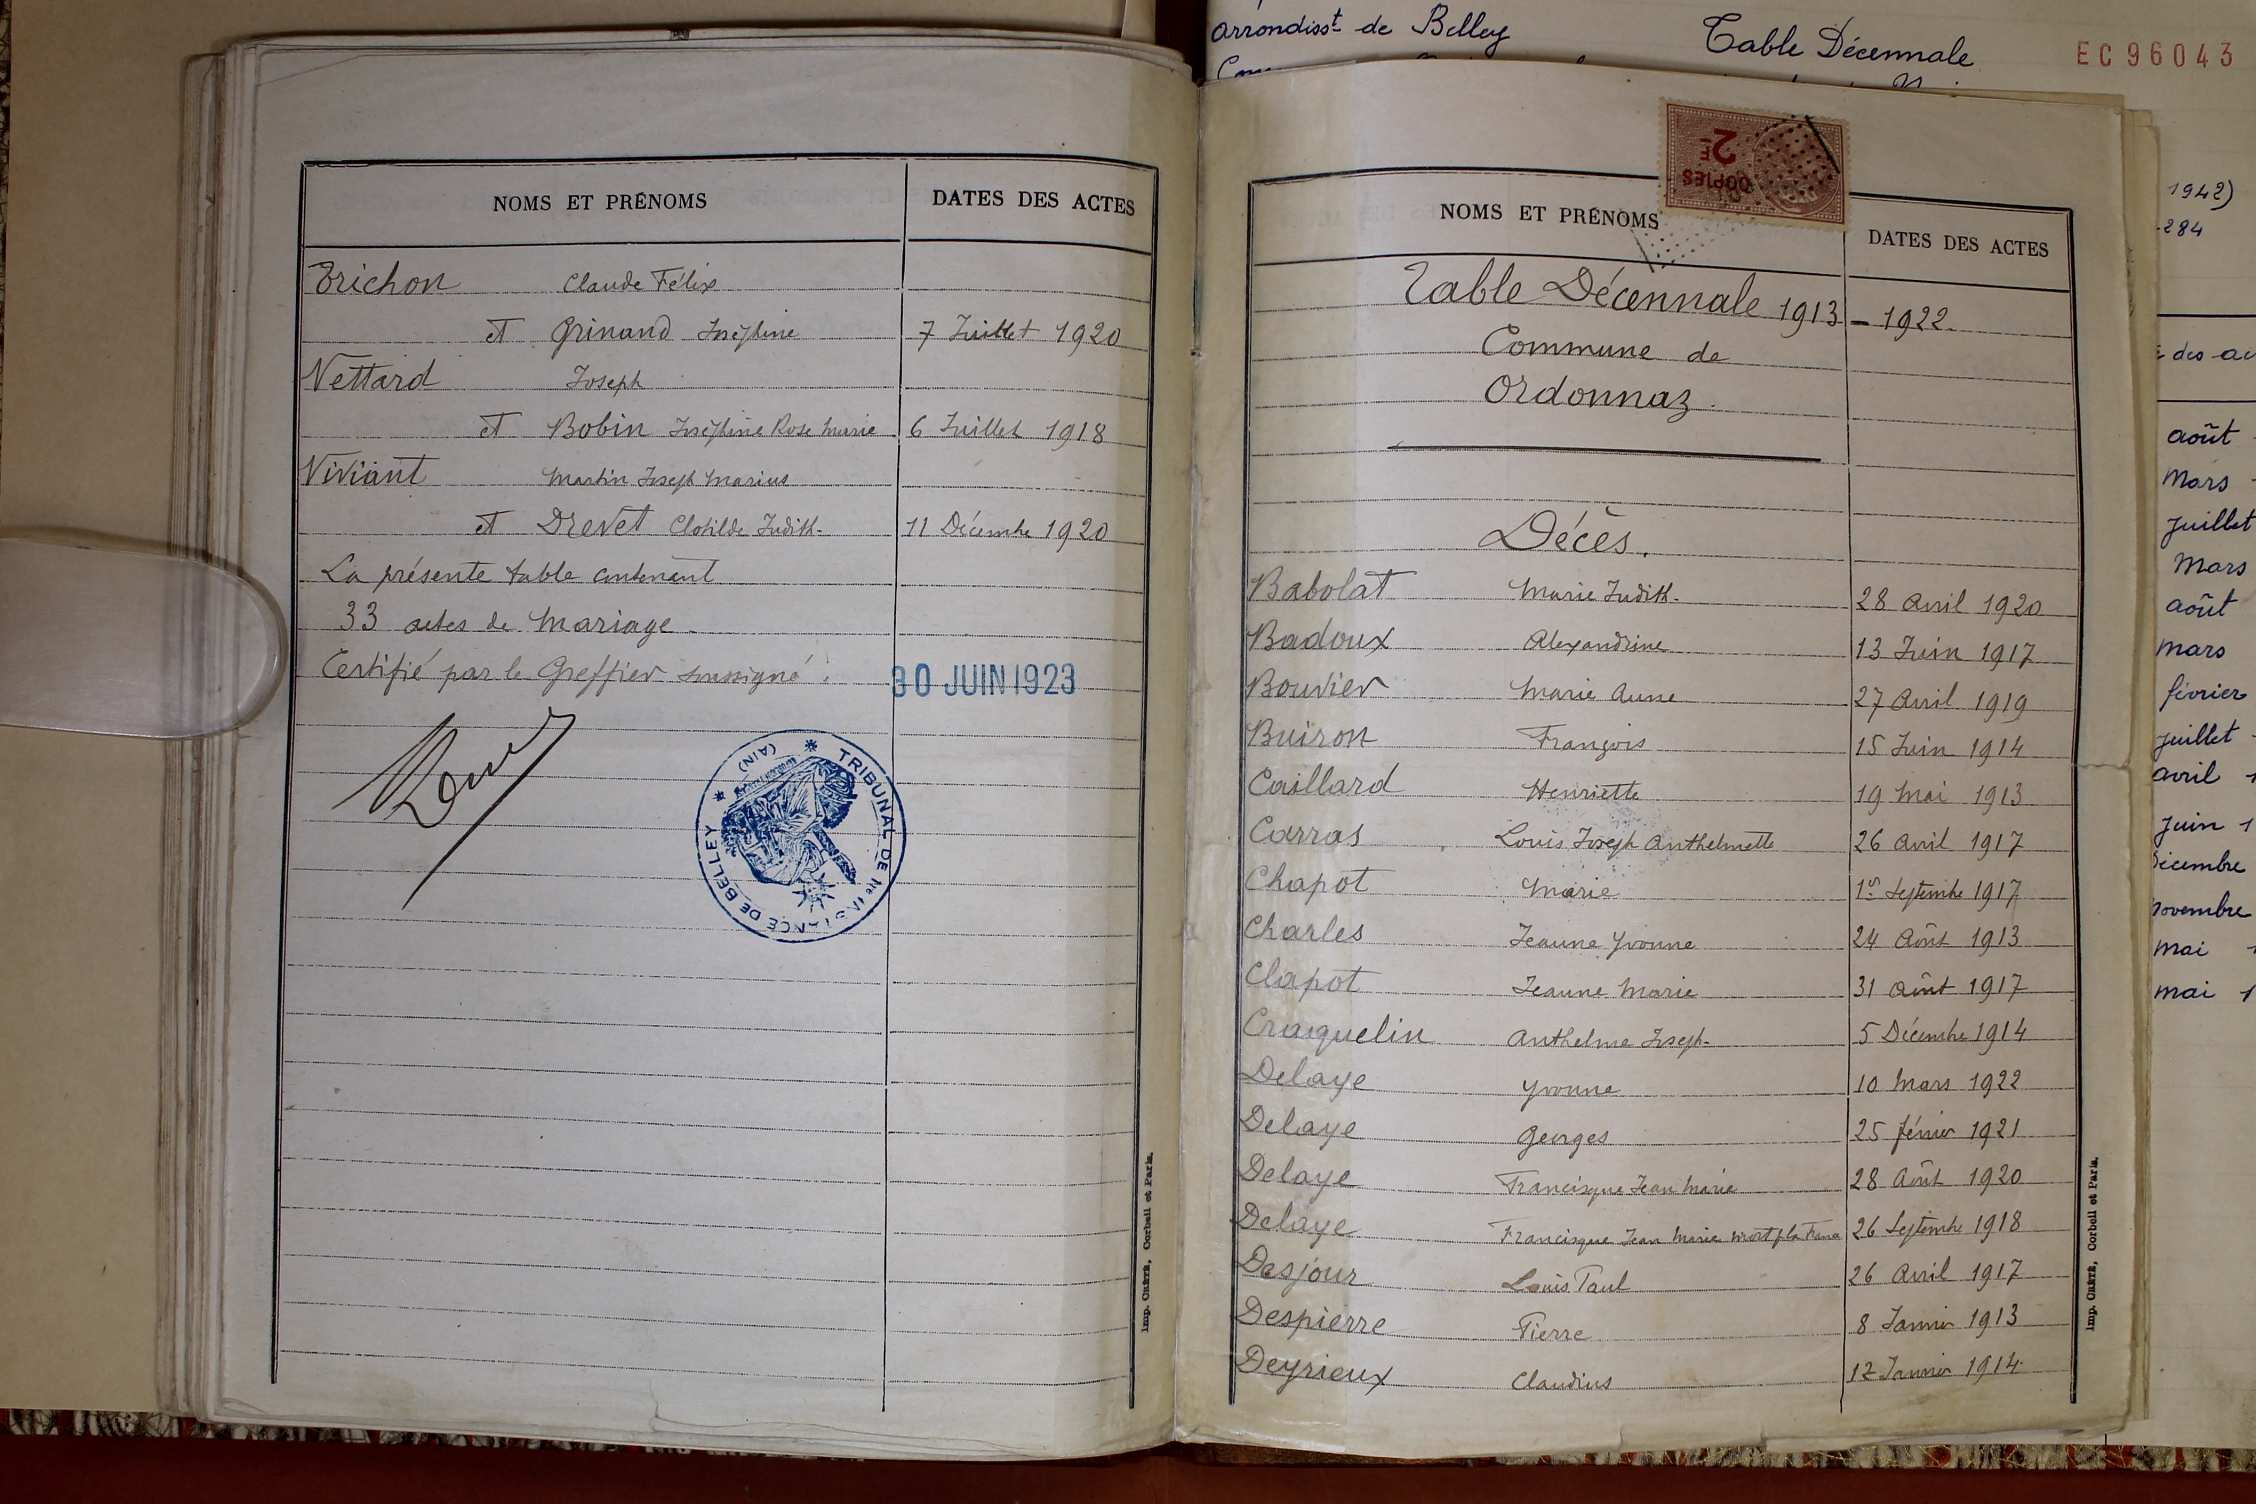 NOMS ET PRÉNOMS DATES DES ACTES
Trichon Claude Félix
et Grinand Joséphine 7 Juillet 1920
Vettard Joseph
et Bobin Joséphine Rose Marie 6 Juillet 1918
Viviant Martin Joseph Marius
et Drevet Clotilde Judith 11 Décembre 1920
La présente table contenant
33 actes de Mariage
Certifié par le Greffier soussigné. 30 JUIN 1923
TRIBUNAL DE 1re INSTANCE DE BELLEY (AIN)
Imp. CRÉTÉ, Corbeil et Paris.
COPIES
2F
NOMS ET PRÉNOMS DATES DES ACTES
Table Décennale 1913 - 1922.
Commune de
Ordonnaz.
Décès.
Babolat Marie Judith 28 avril 1920
Badoux Alexandrine 13 Juin 1917
Bouvier Marie Anne 27 avril 1919
Buiron François 15 Juin 1914
Caillard Henriette 19 Mai 1913
Carras Louis Joseph Anthelmette 26 avril 1917
Chapot Marie 1er Septembre 1917
Charles Jeanne Yvonne 24 Août 1913
Clapot Jeanne Marie 31 août 1917
Craquelin Anthelme Joseph 5 Décembre 1914
Delaye Yvonne 10 Mars 1922
Delaye Georges 25 février 1921
Delaye Francisque Jean Marie 28 Août 1920
Delaye Francisque Jean Marie mort p la 26 Septembre 1918
Desjour Louis Paul 26 avril 1917
Despierre Pierre 8 Janvier 1913
Deyrieux Claudius 12 Janvier 1914
Imp. CRÉTÉ, Corbeil et Paris.
arrondisst de Belley Table Décennale EC96043
1942)
284
août
Mars
juillet
Mars
août
mars
février
juillet
avril
juin
mai
mai